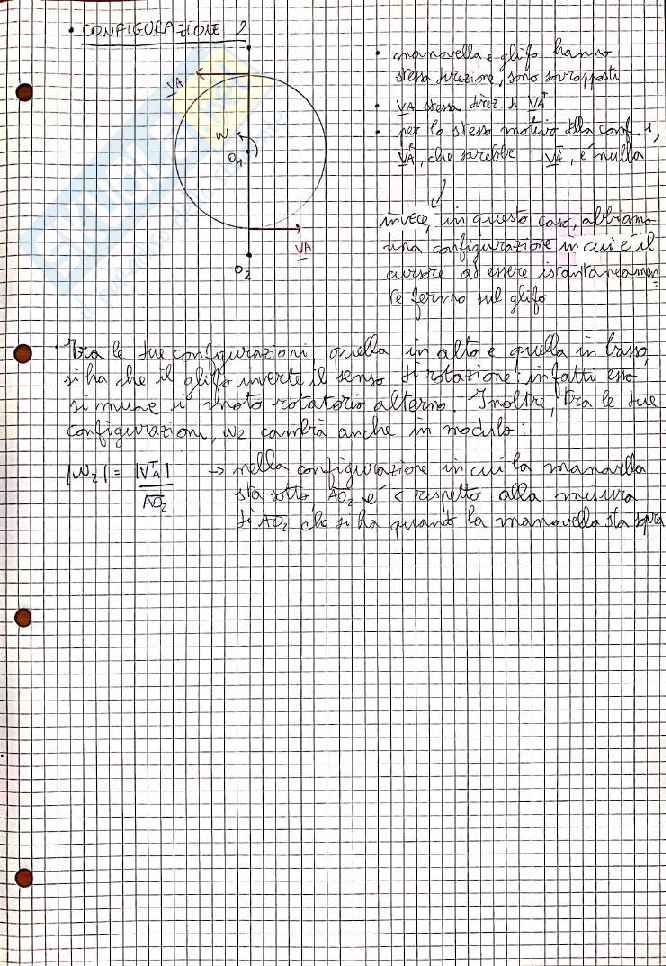 • CONFIGURAZIONE 2
VA
W
O1
VA
O2
• manovella e glifo hanno
stessa direzione, sono sovrapposti
• VA stessa direz di VAT
• per lo stesso motivo della conf. 1,
che sarebbe è nulla
invece, in questo caso, abbiamo
una configurazione in cui è il
cursore ad essere istantaneamen
te fermo sul glifo
Tra le due configurazioni, quella in alto e quella in basso,
si ha che il glifo inverte il senso di rotazione: infatti esso
si muove di moto rotatorio alterno. Inoltre, tra le due
configurazioni, w2 cambia anche in modulo:
|w2| = |VAT| / AO2 → nella configurazione in cui la manovella
sta sotto AO2 è < rispetto alla misura
di AO2 che si ha quando la manovella sta sopra